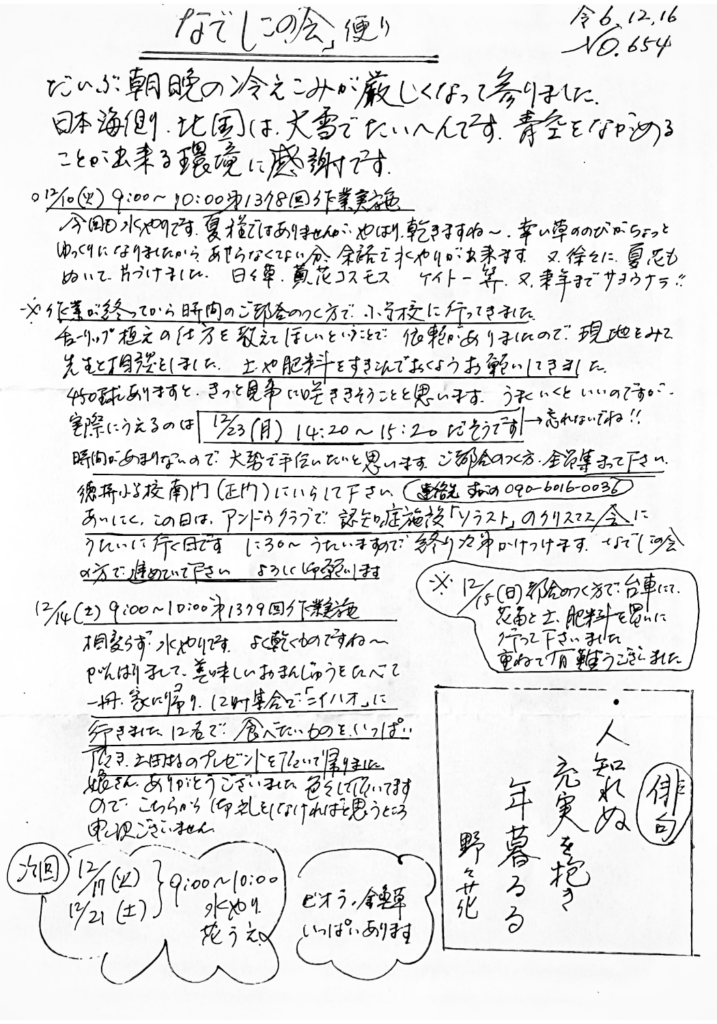 「なでしこの会」便り
令6.12.16
NO.654
だいぶ朝晩の冷えこみが厳しくなって参りました。
日本海側、北国は、大雪でたいへんです。青空をながめる
ことが出来る環境に感謝です。
○12/10(火) 9:00〜10:00 第1378回作業実施
今回も水やりです。夏様ではありませんが、やはり、乾きますね〜。幸い草ののびがちょっと
ゆっくりになりましたから、あせらなくてない分、余話で水やりが出来ます。又、徐々に、夏花も
ぬいて、片づけました。日々草、黄花コスモス ケイトー等、又、来年までサヨウナラ!!
※作業が終ってから時間のご都合のつく方で、小学校に行ってきました。
チューリップ植えの仕方を教えてほしいということで、依頼がありましたので、現地をみて
先生と相談をしました。土や肥料をすきこんでおくようお願いしてきました。
450球もありますと、きっと見事に咲ききそうことと思います。うまくいくといいのですが、
実際にうえるのは 12/23(月) 14:20〜15:20 だそうです →忘れないでね!!
時間があまりないので、大勢で手伝いたいと思います。ご都合のつく方、全員集まって下さい。
徳井小学校南門(正門)にいらして下さい。 連絡先 090-6016-0036
あいにく、この日は、アンドウクラブで、認知症施設「ソラスト」のクリスマス会に
うたいに行く日です に30〜うたいますので終り次第かけつけます。なでしこの会
の方で進めていて下さい よろしく御願います
12/14(土) 9:00〜10:00 第1379回作業実施
相変らず、水やりです。よく乾くものですね〜
がんばりまして、美味しいおまんじゅうをたべて
一担、家に帰り、12時集合で「ニイハオ」に
行きました。12名で、食べたいものをいっぱい
頂き、お土産のプレゼントを頂いて帰りました
娘さん、ありがとうございました 色々して頂いてます
ので、こちらから御礼をしなければと思うところ
申し訳ございません
※12/15(日)都合のつく方で、台車にて、
花苗と土、肥料を買いに
行って下さいました
重ねて有難うございました
俳句
・人知れぬ
充実を抱き
年暮るる
野々花
次回
12/17(火)
12/21(土)
9:00〜10:00
水やり
花うえ
ビオラ、金魚草
いっぱいあります